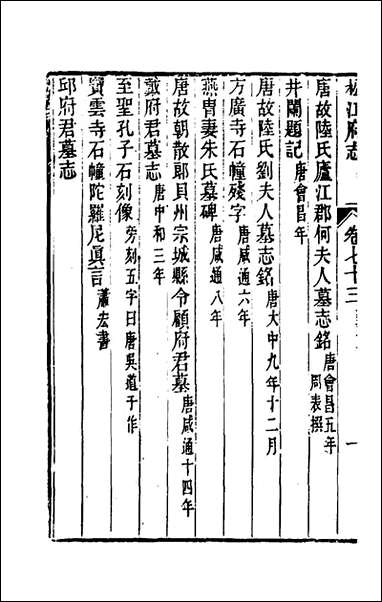 松江府志 卷七十三 一
唐故陸氏廬江郡何夫人墓志銘 唐會昌五年 周表撰
井闌題記 唐會昌年
唐故陸氏劉夫人墓志銘 唐大中九年十二月
方廣寺石幢殘字 唐咸通六年
燕胄妻朱氏墓碑 唐咸通八年
唐故朝散郞貝州宗城縣令顧府君墓 唐咸通十四年
戴府君墓志 唐中和三年
至聖孔子石刻像 旁刻五字曰唐吳道子作
寶雲寺石幢陀羅尼眞言 蕭宏書
邱府君墓志